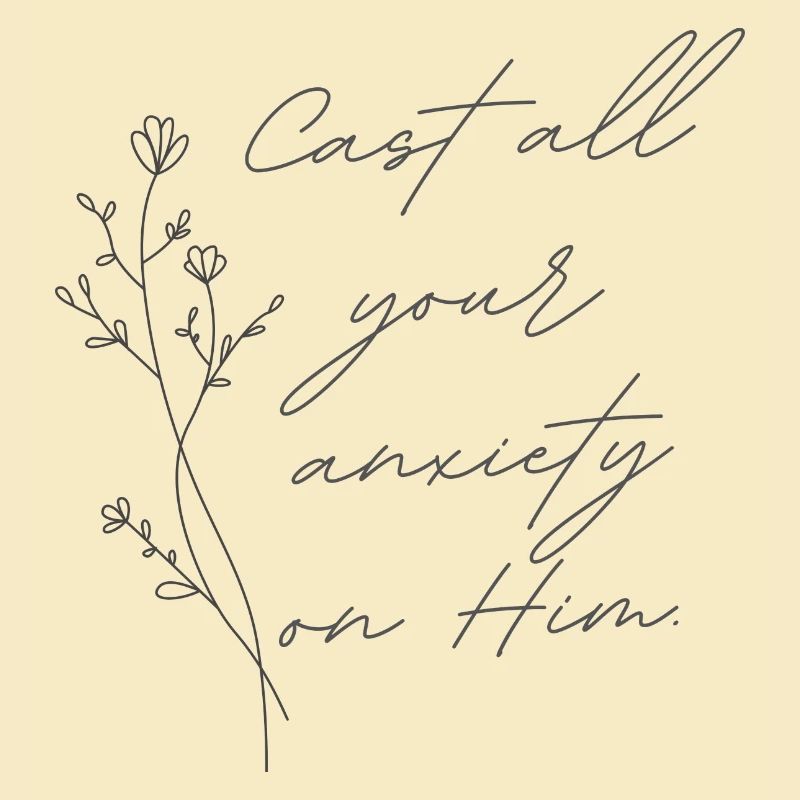 Cast all
your
anxiety
on Him.